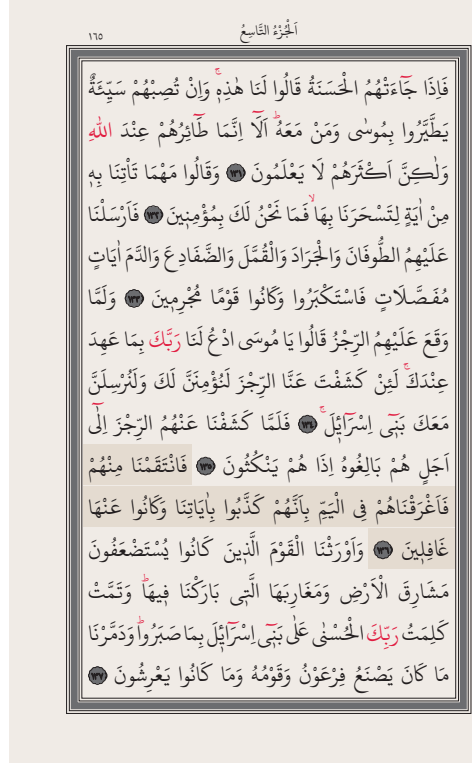 اَلْجُزْءُ التَّاسِعُ
١٦٥
فَاِذَا جَٓاءَتْهُمُ الْحَسَنَةُ قَالُوا لَنَا هٰذِه۪ۚ وَاِنْ تُصِبْهُمْ سَيِّئَةٌ
يَطَّيَّرُوا بِمُوسٰى وَمَنْ مَعَهُۜ اَلَٓا اِنَّمَا طَٓائِرُهُمْ عِنْدَ اللّٰهِ
وَلٰكِنَّ اَكْثَرَهُمْ لَا يَعْلَمُونَ ﴿١٣١﴾ وَقَالُوا مَهْمَا تَأْتِنَا بِه۪
مِنْ اٰيَةٍ لِتَسْحَرَنَا بِهَاۙ فَمَا نَحْنُ لَكَ بِمُؤْمِن۪ينَ ﴿١٣٢﴾ فَاَرْسَلْنَا
عَلَيْهِمُ الطُّوفَانَ وَالْجَرَادَ وَالْقُمَّلَ وَالضَّفَادِعَ وَالدَّمَ اٰيَاتٍ
مُفَصَّلَاتٍ فَاسْتَكْبَرُوا وَكَانُوا قَوْمًا مُجْرِم۪ينَ ﴿١٣٣﴾ وَلَمَّا
وَقَعَ عَلَيْهِمُ الرِّجْزُ قَالُوا يَا مُوسَى ادْعُ لَنَا رَبَّكَ بِمَا عَهِدَ
عِنْدَكَۚ لَئِنْ كَشَفْتَ عَنَّا الرِّجْزَ لَنُؤْمِنَنَّ لَكَ وَلَنُرْسِلَنَّ
مَعَكَ بَن۪ٓي اِسْرَٓائ۪لَۚ ﴿١٣٤﴾ فَلَمَّا كَشَفْنَا عَنْهُمُ الرِّجْزَ اِلٰٓى
اَجَلٍ هُمْ بَالِغُوهُ اِذَا هُمْ يَنْكُثُونَ ﴿١٣٥﴾ فَانْتَقَمْنَا مِنْهُمْ
فَاَغْرَقْنَاهُمْ فِي الْيَمِّ بِاَنَّهُمْ كَذَّبُوا بِاٰيَاتِنَا وَكَانُوا عَنْهَا
غَافِل۪ينَ ﴿١٣٦﴾ وَاَوْرَثْنَا الْقَوْمَ الَّذ۪ينَ كَانُوا يُسْتَضْعَفُونَ
مَشَارِقَ الْاَرْضِ وَمَغَارِبَهَا الَّت۪ي بَارَكْنَا ف۪يهَاۜ وَتَمَّتْ
كَلِمَتُ رَبِّكَ الْحُسْنٰى عَلٰى بَن۪ٓي اِسْرَٓائ۪لَ بِمَا صَبَرُواۜ وَدَمَّرْنَا
مَا كَانَ يَصْنَعُ فِرْعَوْنُ وَقَوْمُهُ وَمَا كَانُوا يَعْرِشُونَ ﴿١٣٧﴾